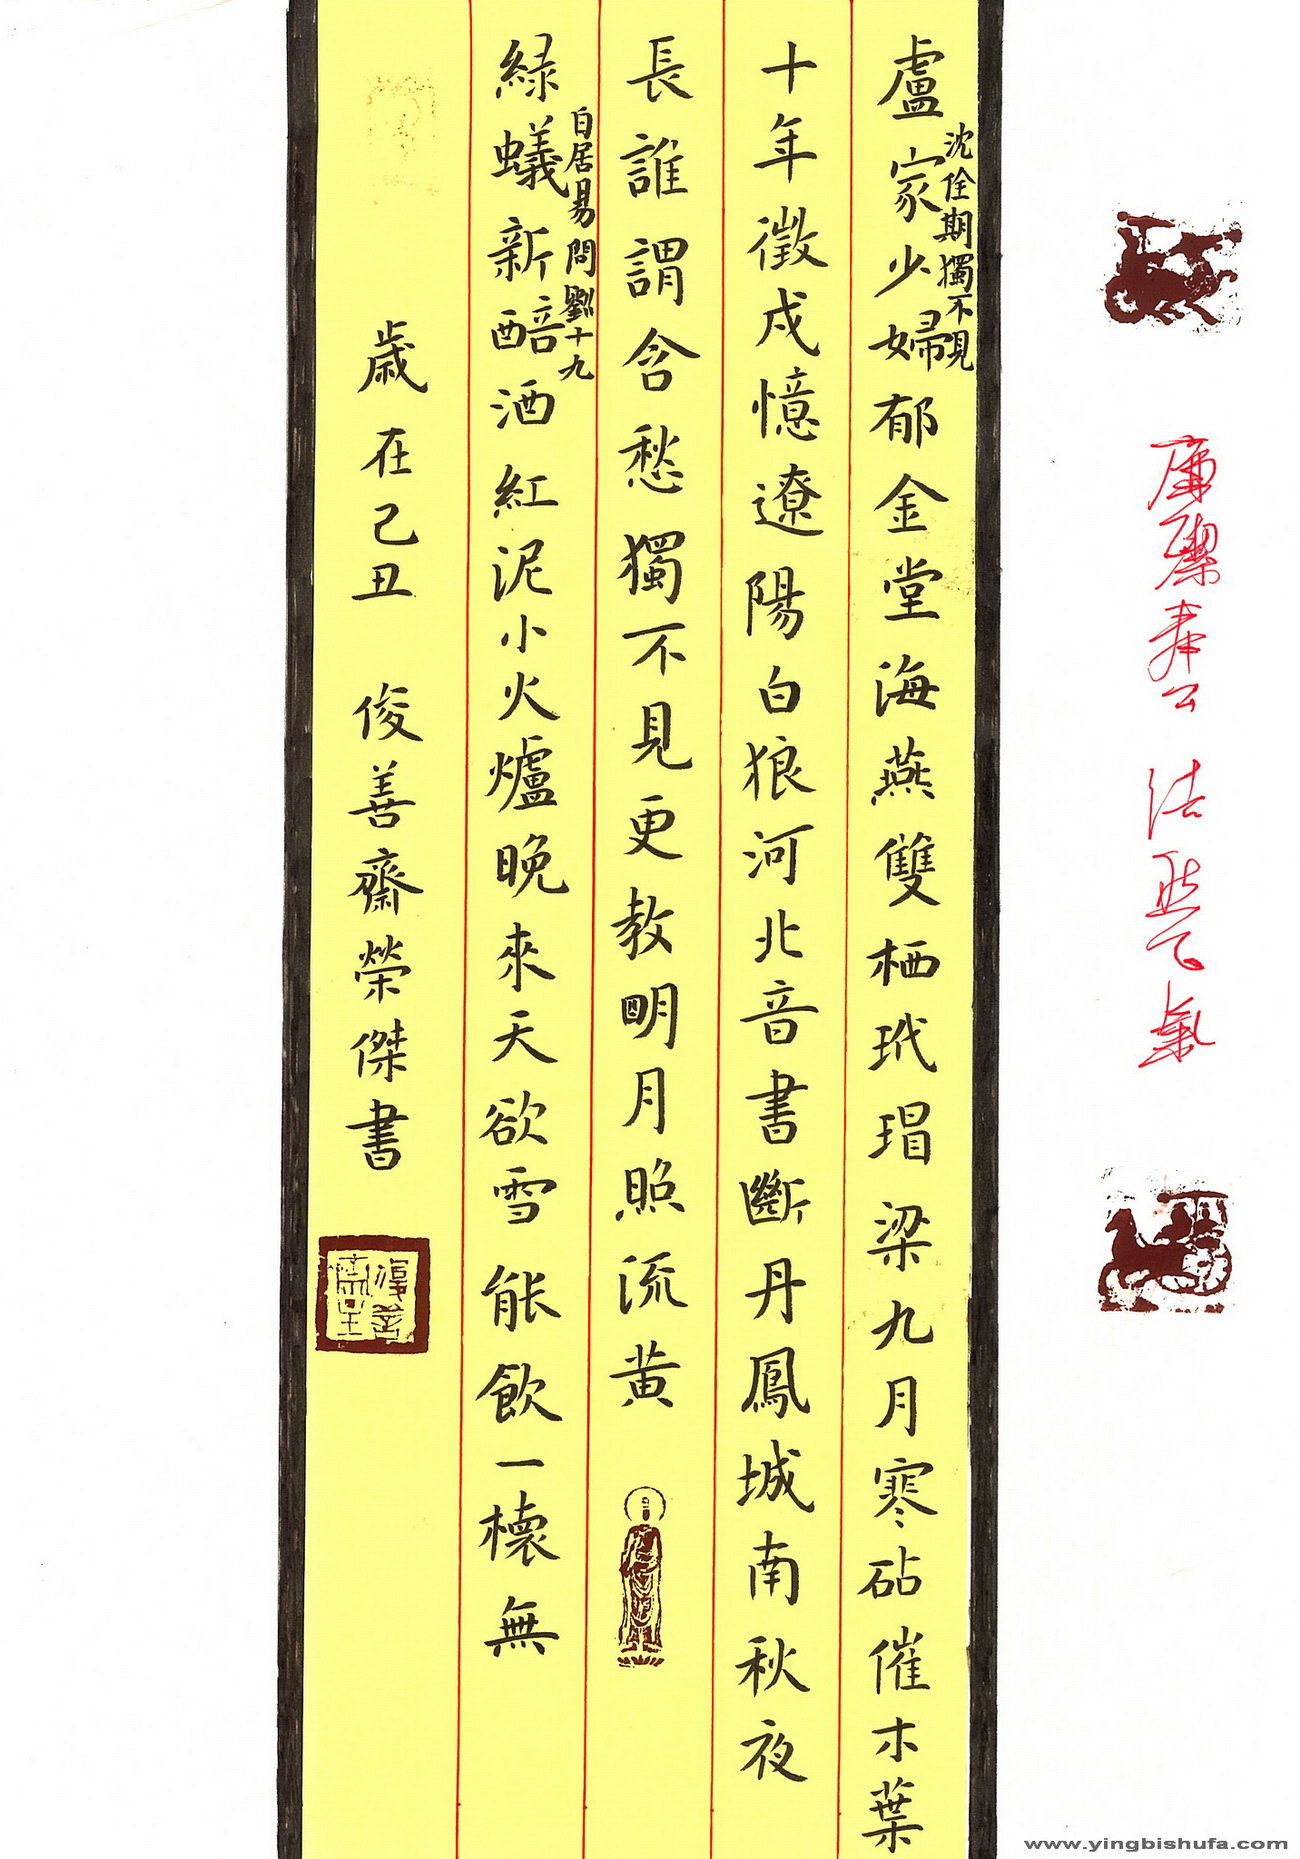 盧家少婦郁金堂海燕雙栖玳瑁梁九月寒砧催木葉
沈佺期獨不見
十年徵戍憶遼陽白狼河北音書斷丹鳳城南秋夜
長誰謂含愁獨不見更教明月照流黄
緑蟻新醅酒紅泥小火爐晚來天欲雪能飲一櫰無
白居易問劉十九
歲在己丑 俊善齋榮傑書
www.yingbishufa.com